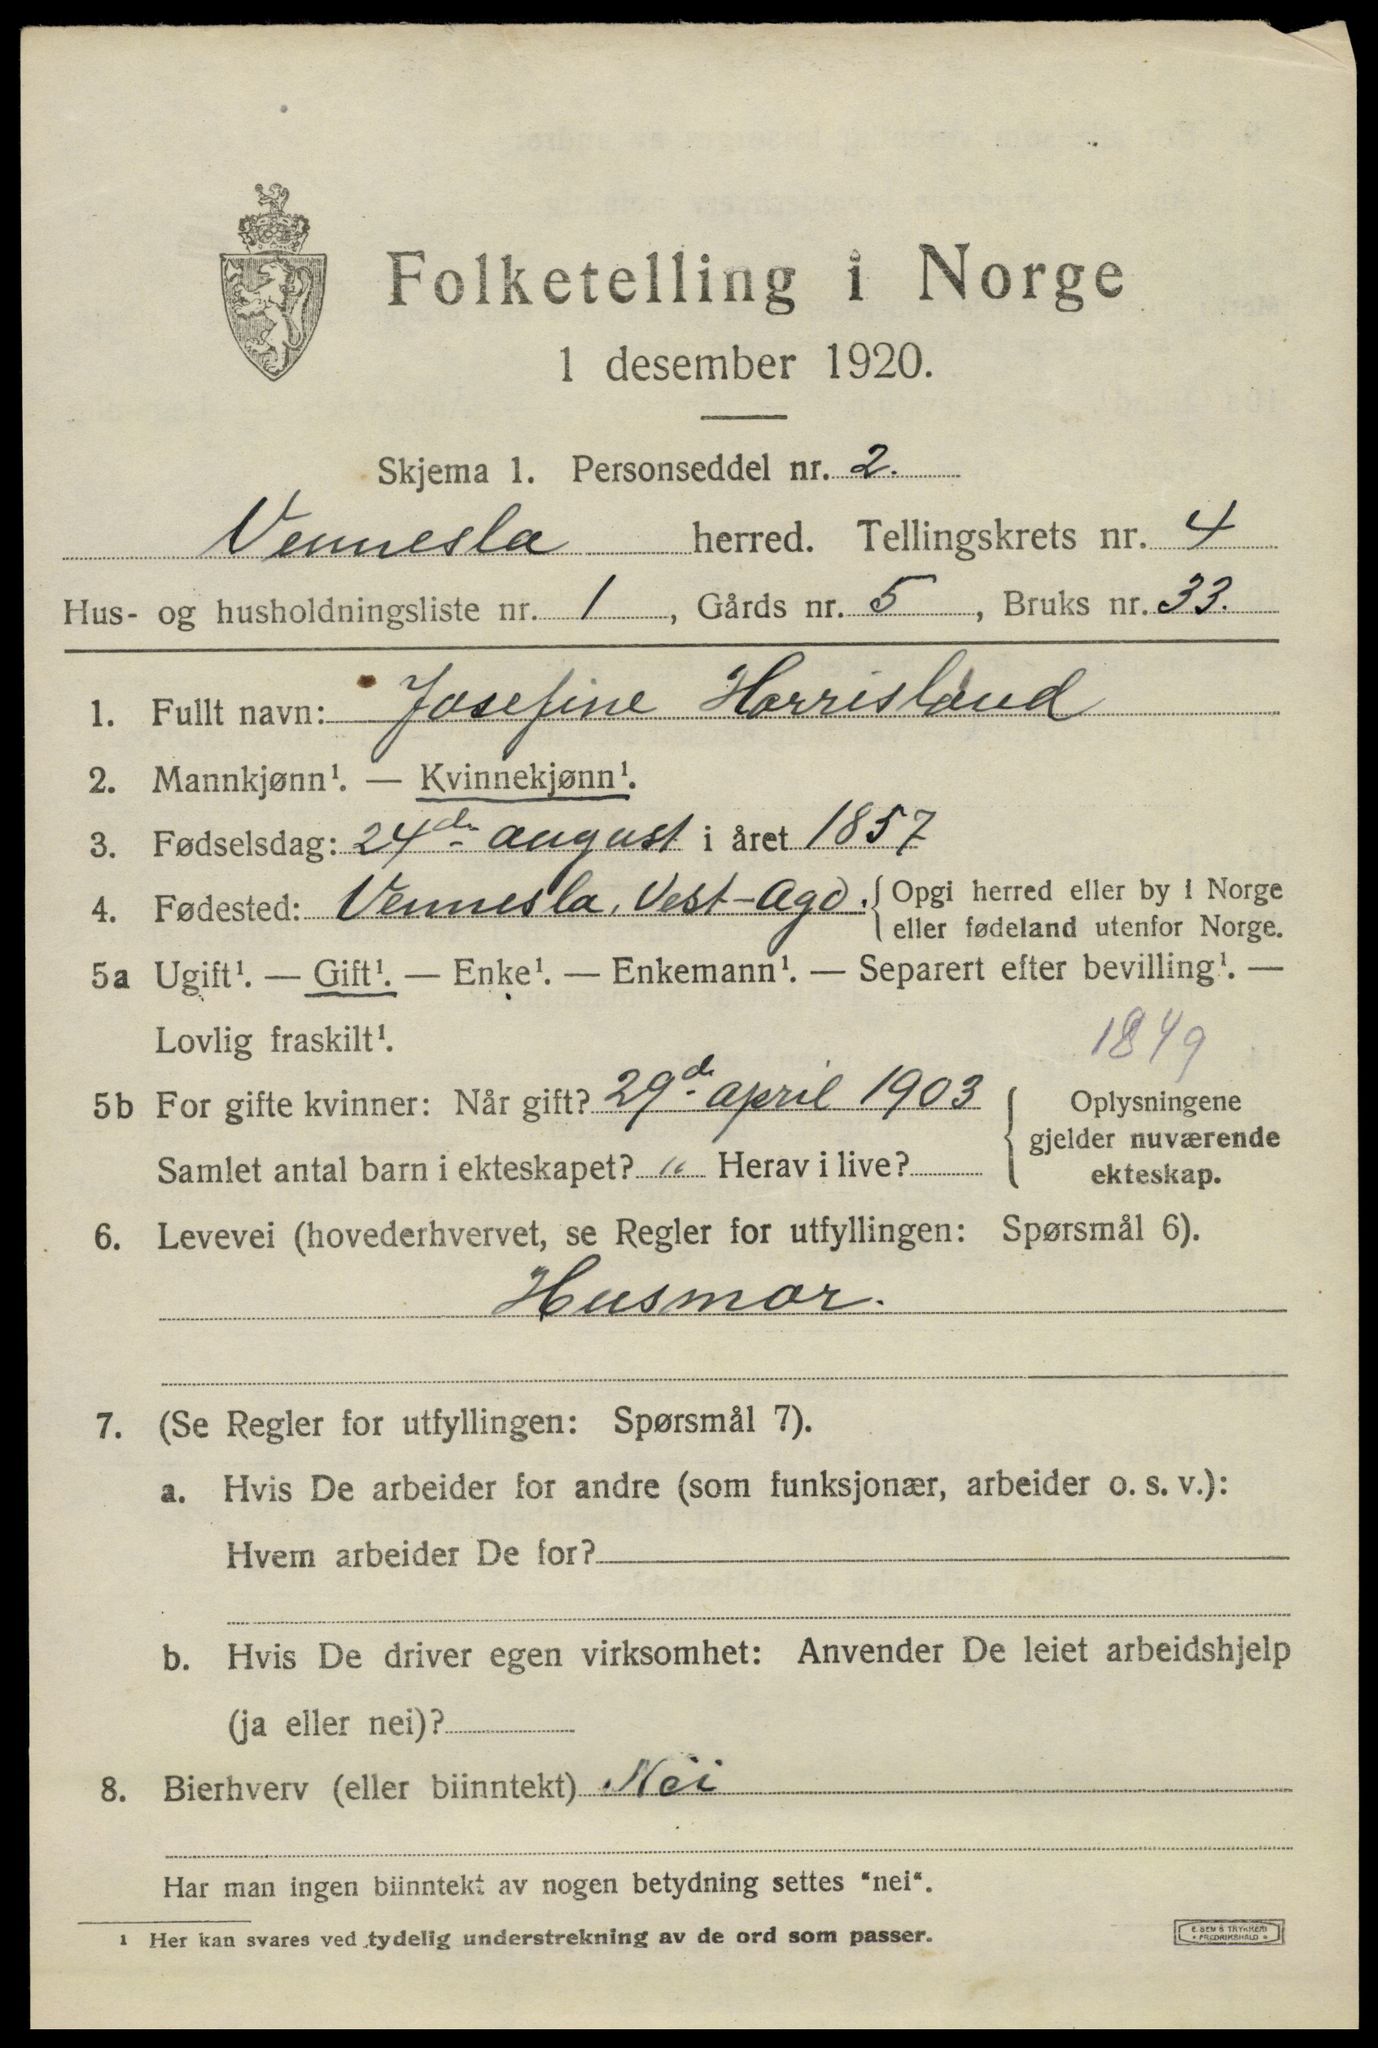 Folketelling i Norge
1 desember 1920.
Skjema 1. Personseddel nr. 2.
Vennesla herred. Tellingskrets nr. 4
Hus- og husholdningsliste nr. 1, Gårds nr. 5, Bruks nr. 33.
1. Fullt navn: Josefine Horrisland
2. Mannkjønn¹. — Kvinnekjønn¹.
3. Fødselsdag: 24de august i året 1857
4. Fødested: Vennesla, Vest-Agd. {Opgi herred eller by i Norge
eller fødeland utenfor Norge.
5a Ugift¹. — Gift¹. — Enke¹. — Enkemann¹. — Separert efter bevilling¹. —
Lovlig fraskilt¹.
1849
5b For gifte kvinner: Når gift? 29de april 1903
Samlet antal barn i ekteskapet? " Herav i live?
Oplysningene
gjelder nuværende
ekteskap.
6. Levevei (hovederhvervet, se Regler for utfyllingen: Spørsmål 6).
Husmor.
7. (Se Regler for utfyllingen: Spørsmål 7).
a. Hvis De arbeider for andre (som funksjonær, arbeider o. s. v.):
Hvem arbeider De for?
b. Hvis De driver egen virksomhet: Anvender De leiet arbeidshjelp
(ja eller nei)?
8. Bierhverv (eller biinntekt) Nei
Har man ingen biinntekt av nogen betydning settes "nei".
¹ Her kan svares ved tydelig understrekning av de ord som passer.
E. SEM'S TRYKKERI
* FREDRIKSHALD *